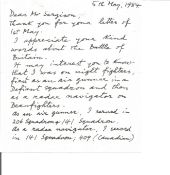 5th May, 1984
Dear Mr Sargison,
Thank you for your letter of
1st May.
I appreciate your kind
words about the Battle of
Britain.
It may interest you to know
that I was on night fighters,
first as an air gunner in a
Defiant squadron and then
as a radar navigator on
Beaufighters.
As an air gunner, I served in
264 Squadron, 141 Squadron.
As a radar navigator, I served
in 141 Squadron, 409 (Canadian)